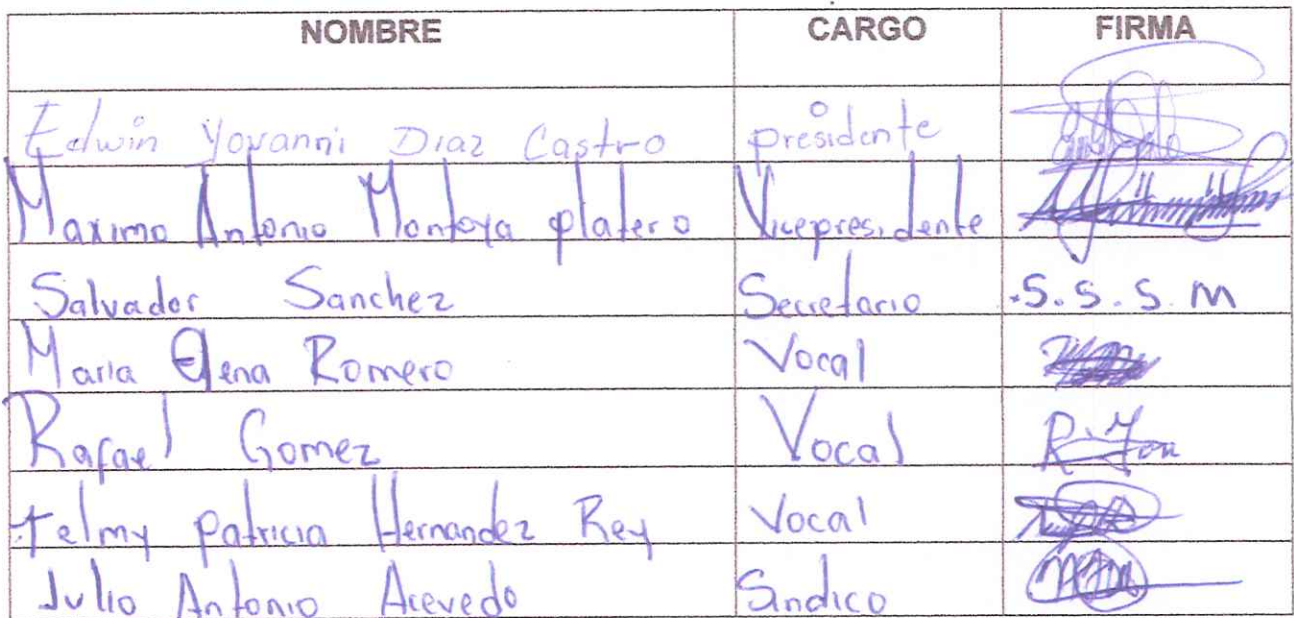 NOMBRE CARGO FIRMA
Edwin Yovanni Diaz Castro presidente
Maximo Antonio Montoya platero Vicepresidente
Salvador Sanchez Secretario .S.S.S.M
Maria Elena Romero Vocal
Rafael Gomez Vocal
telmy patricia Hernandez Rey Vocal
Julio Antonio Acevedo Sindico